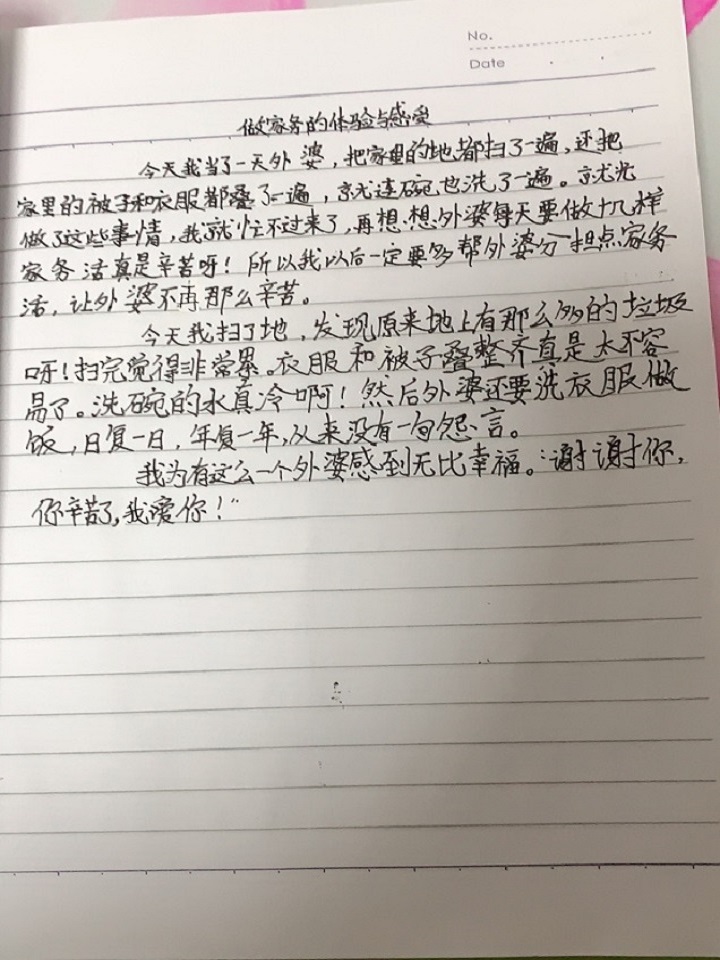 No.
Date
做家务的体验与感受
今天我当了一天外婆，把家里的地都扫了一遍，还把
家里的被子和衣服都叠了一遍，就连碗也洗了一遍。就光
做了这些事情，我就忙不过来了，再想想外婆每天要做十几样
家务活真是辛苦呀！所以我以后一定要多帮外婆分担点家务
活，让外婆不再那么辛苦。
今天我扫了地，发现原来地上有那么多的垃圾
呀！扫完觉得非常累。衣服和被子叠整齐真是太不容
易了。洗碗的水真冷啊！然后外婆还要洗衣服做
饭，日复一日，年复一年，从来没有一句怨言。
我为有这么一个外婆感到无比幸福。“谢谢你，
你辛苦了，我爱你！”